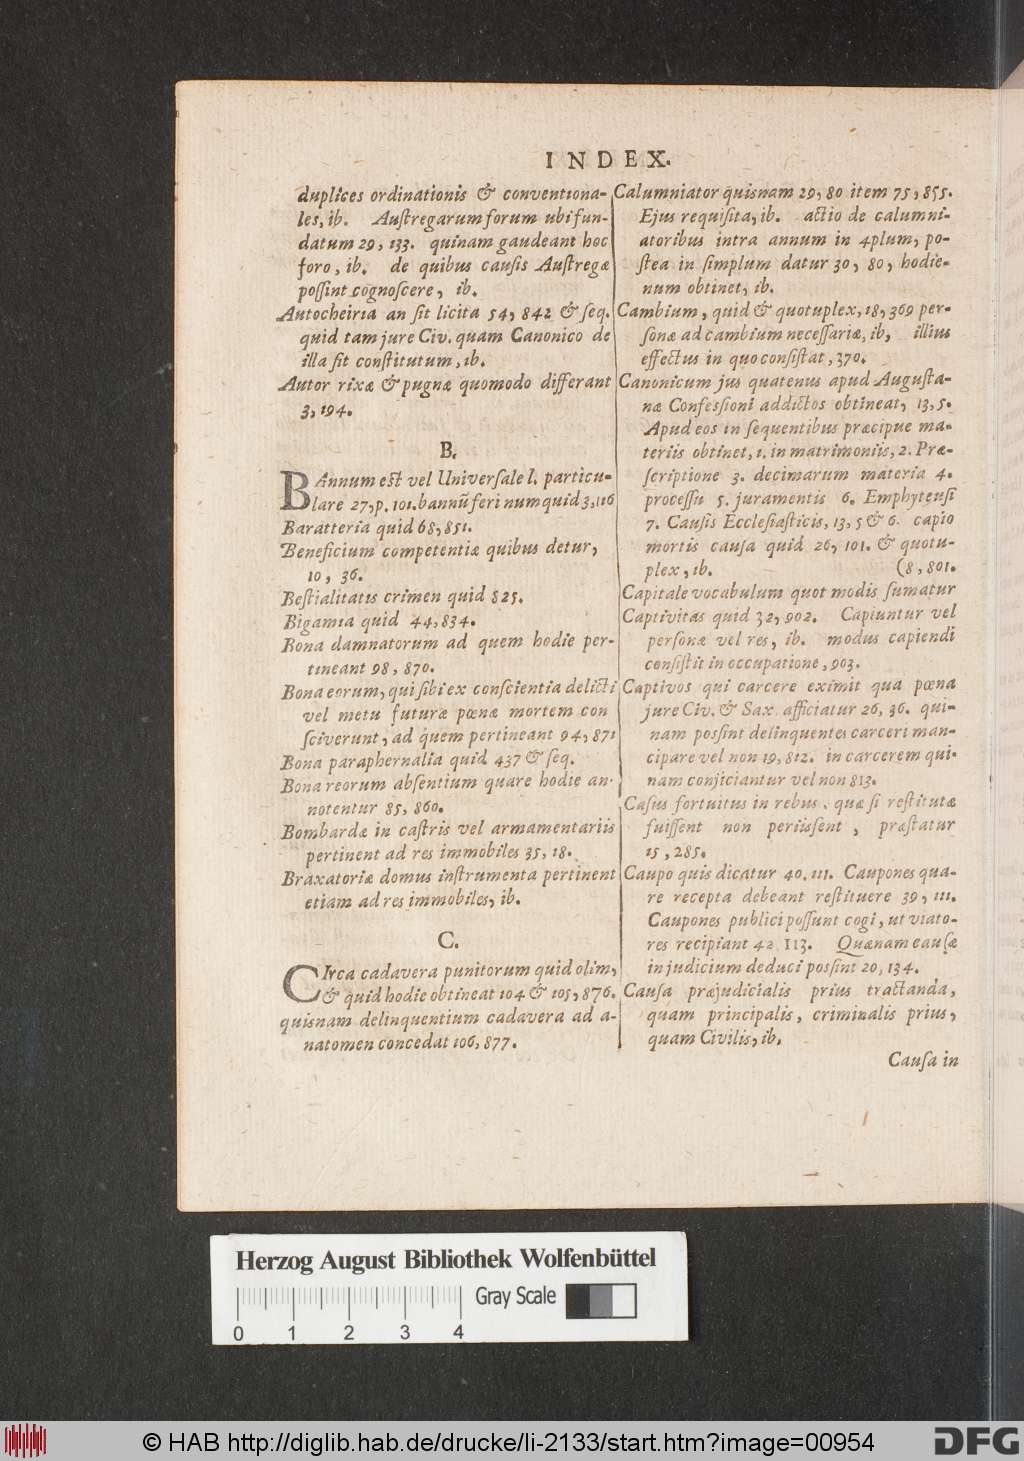 INDEX.
duplices ordinationis & conventiona-
les, ib. Auſtregarum forum ubi fun-
datum 29, 133. quinam gaudeant hoc
foro, ib. de quibus cauſis Auſtregæ
poſſint cognoſcere, ib.
Autocheiria an ſit licita 54, 842 & ſeq.
quid tam jure Civ. quam Canonico de
illa ſit conſtitutum, ib.
Autor rixæ & pugnæ quomodo differant
3, 194.
B.
BAnnum eſt vel Univerſale l. particu-
lare 27, p. 101. bannũ feri num quid 3, 116
Baratteria quid 68, 851.
Beneficium competentiæ quibus detur,
10, 36.
Beſtialitatis crimen quid 825.
Bigamia quid 44, 834.
Bona damnatorum ad quem hodie per-
tineant 98, 870.
Bona eorum, qui ſibi ex conſcientia delicti
vel metu futuræ pœnæ mortem con
ſciverunt, ad quem pertineant 94, 871
Bona paraphernalia quid 437 & ſeq.
Bona reorum abſentium quare hodie an-
notentur 85, 860.
Bombardæ in caſtris vel armamentariis
pertinent ad res immobiles 35, 18.
Braxatoriæ domus inſtrumenta pertinent
etiam ad res immobiles, ib.
C.
CIrca cadavera punitorum quid olim,
& quid hodie obtineat 104 & 105, 876.
quisnam delinquentium cadavera ad a-
natomen concedat 106, 877.
Calumniator quisnam 29, 80 item 75, 855.
Ejus requiſita, ib. actio de calumni-
atoribus intra annum in 4plum, po-
ſtea in ſimplum datur 30, 80, hodie-
num obtinet, ib.
Cambium, quid & quotuplex, 18, 369 per-
ſonæ ad cambium neceſſariæ, ib, illius
effectus in quo conſiſtat, 370.
Canonicum jus quatenus apud Auguſta-
næ Confeſsioni addictos obtineat, 13, 5.
Apud eos in ſequentibus præcipue ma-
teriis obtinet, 1. in matrimoniis, 2. Præ-
ſcriptione 3. decimarum materia 4.
proceſſu 5. juramentis 6. Emphyteuſi
7. Cauſis Eccleſiaſticis, 13, 5 & 6. capio
mortis cauſa quid 26, 101. & quotu-
plex, ib. (8, 801.
Capitale vocabulum quot modis ſumatur
Captivitas quid 32, 902. Capiuntur vel
perſonæ vel res, ib. modus capiendi
conſiſtit in occupatione, 903.
Captivos qui carcere eximit qua pœna
jure Civ. & Sax afficiatur 26, 36. qui-
nam poſſint delinquentes carceri man-
cipare vel non 19, 812. in carcerem qui-
nam conjiciantur vel non 813.
Caſus fortuitus in rebus, quæ ſi reſtitutæ
fuiſſent non periiſſent, præſtatur
15, 285.
Caupo quis dicatur 40, 111. Caupones qua-
re recepta debeant reſtituere 39, 111.
Caupones publici poſſunt cogi, ut viato-
res recipiant 42, 113. Quænam cauſæ
in judicium deduci poſsint 20, 134.
Cauſa præjudicialis prius tractanda,
quam principalis, criminalis prius,
quam Civilis, ib.
Cauſa in
Herzog August Bibliothek Wolfenbüttel
Gray Scale
0 1 2 3 4
© HAB http://diglib.hab.de/drucke/li-2133/start.htm?image=00954
DFG